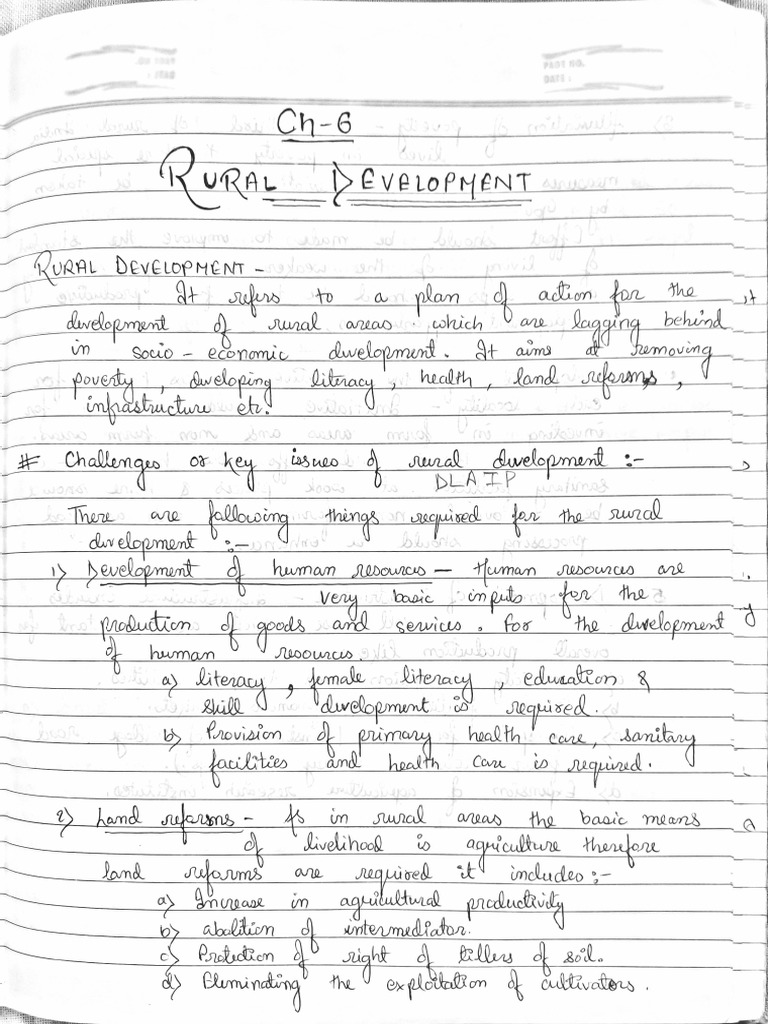 PAGE NO.
DATE :
Ch-6
RURAL DEVELOPMENT
RURAL DEVELOPMENT -
It refers to a plan of action for the
development of rural areas which are lagging behind
in socio - economic development. It aims at removing
poverty, developing literacy, health, land reforms,
infrastructure etc.
# Challenges or key issues of rural development :-
DLAIP
There are following things required for the rural
development :-
1) Development of human resources - Human resources are
very basic inputs for the
production of goods and services. For the development
of human resources.
a) literacy, female literacy, education &
skill development is required.
b) Provision of primary health care, sanitary
facilities and health care is required.
2) Land reforms - As in rural areas the basic means
of livelihood is agriculture therefore
land reforms are required it includes :-
a) Increase in agricultural productivity
b) abolition of intermediator.
c) Protection of right of tillers of soil.
d) Eleminating the exploitation of cultivators.